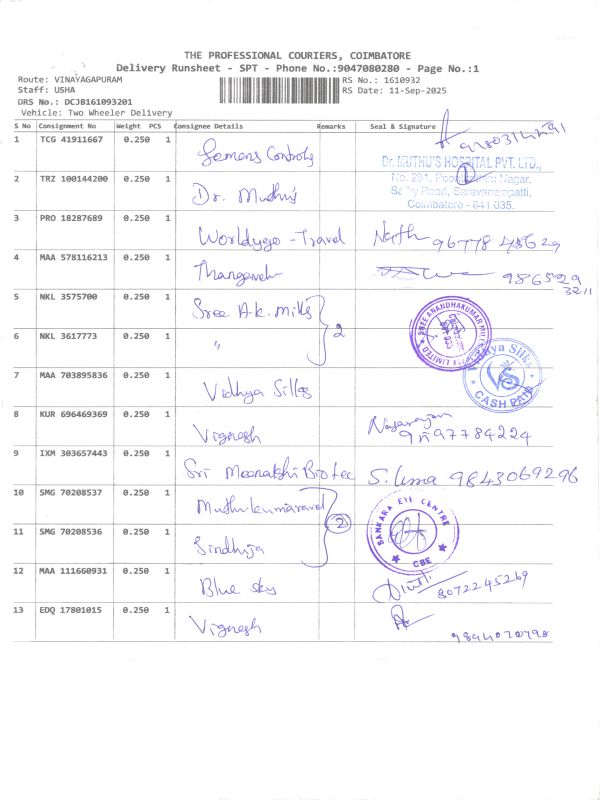 THE PROFESSIONAL COURIERS, COIMBATORE
Delivery Runsheet - SPT - Phone No.:9047080280 - Page No.:1
Route: VINAYAGAPURAM RS No.: 1610932
Staff: USHA RS Date: 11-Sep-2025
DRS No.: DCJB161093201
Vehicle: Two Wheeler Delivery
S No Consignment No Weight PCS Consignee Details Remarks Seal & Signature
1 TCG 41911667 0.250 1 Controls
Dr. MUTHU'S HOSPITAL PVT. LTD.,
No. 281, Nagar,
Road, Saravanampatti,
Coimbatore - 641 035.
2 TRZ 100144200 0.250 1 Dr. Muthu's 1
3 PRO 18287689 0.250 1 Worldygo - Travel Nath 96778 45629
4 MAA 578116213 0.250 1 Thangavelu 9865929
3211
5 NKL 3575700 0.250 1 Sree A.k. Mills
2
6 NKL 3617773 0.250 1 "
SREE ANANDHAKUMAR MILLS LIMITED
7 MAA 703895836 0.250 1 Vidhya Silks
Vidhya Silks
VS
CASH PAID
8 KUR 696469369 0.250 1 Vignesh Nagarajan
9 IXM 303657443 0.250 1 Sri Meenakshi Biotec S. Uma 9843069296
10 SMG 70208537 0.250 1 Muthukumaravel
2
SANKARA EYE CENTRE
CBE
11 SMG 70208536 0.250 1 Sindhuja
12 MAA 111660931 0.250 1 Blue sky 8072245269
13 EDQ 17801015 0.250 1 Vignesh